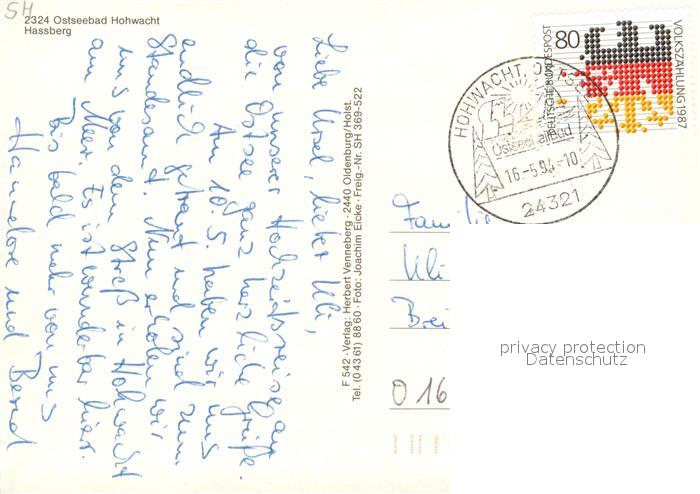 SH
2324 Ostseebad Hohwacht
Hassberg
Liebe Ursel, lieber Uli,
von unserer Hochzeitsreise an
die Ostsee ganz herzliche Grüße.
Am 10.5. haben wir uns
endlich getraut und zum
Standesamt. Nun erholen wir
uns von dem Streß in Hohwacht
am Meer. Es ist wunderbar hier.
Bis bald mehr von uns
Hannelore und Bernd
F 542 · Verlag: Herbert Venneberg · 2440 Oldenburg/Holst.
Tel. (0 43 61) 88 60 · Foto: Joachim Eicke · Freig.-Nr. SH 369-522
80
DEUTSCHE BUNDESPOST
VOLKSZÄHLUNG 1987
HOHWACHT, OSTSEE
Ostseeheilbad
16.-5.94-10
24321
Familie
Uli
Brei
O 16
privacy protection
Datenschutz